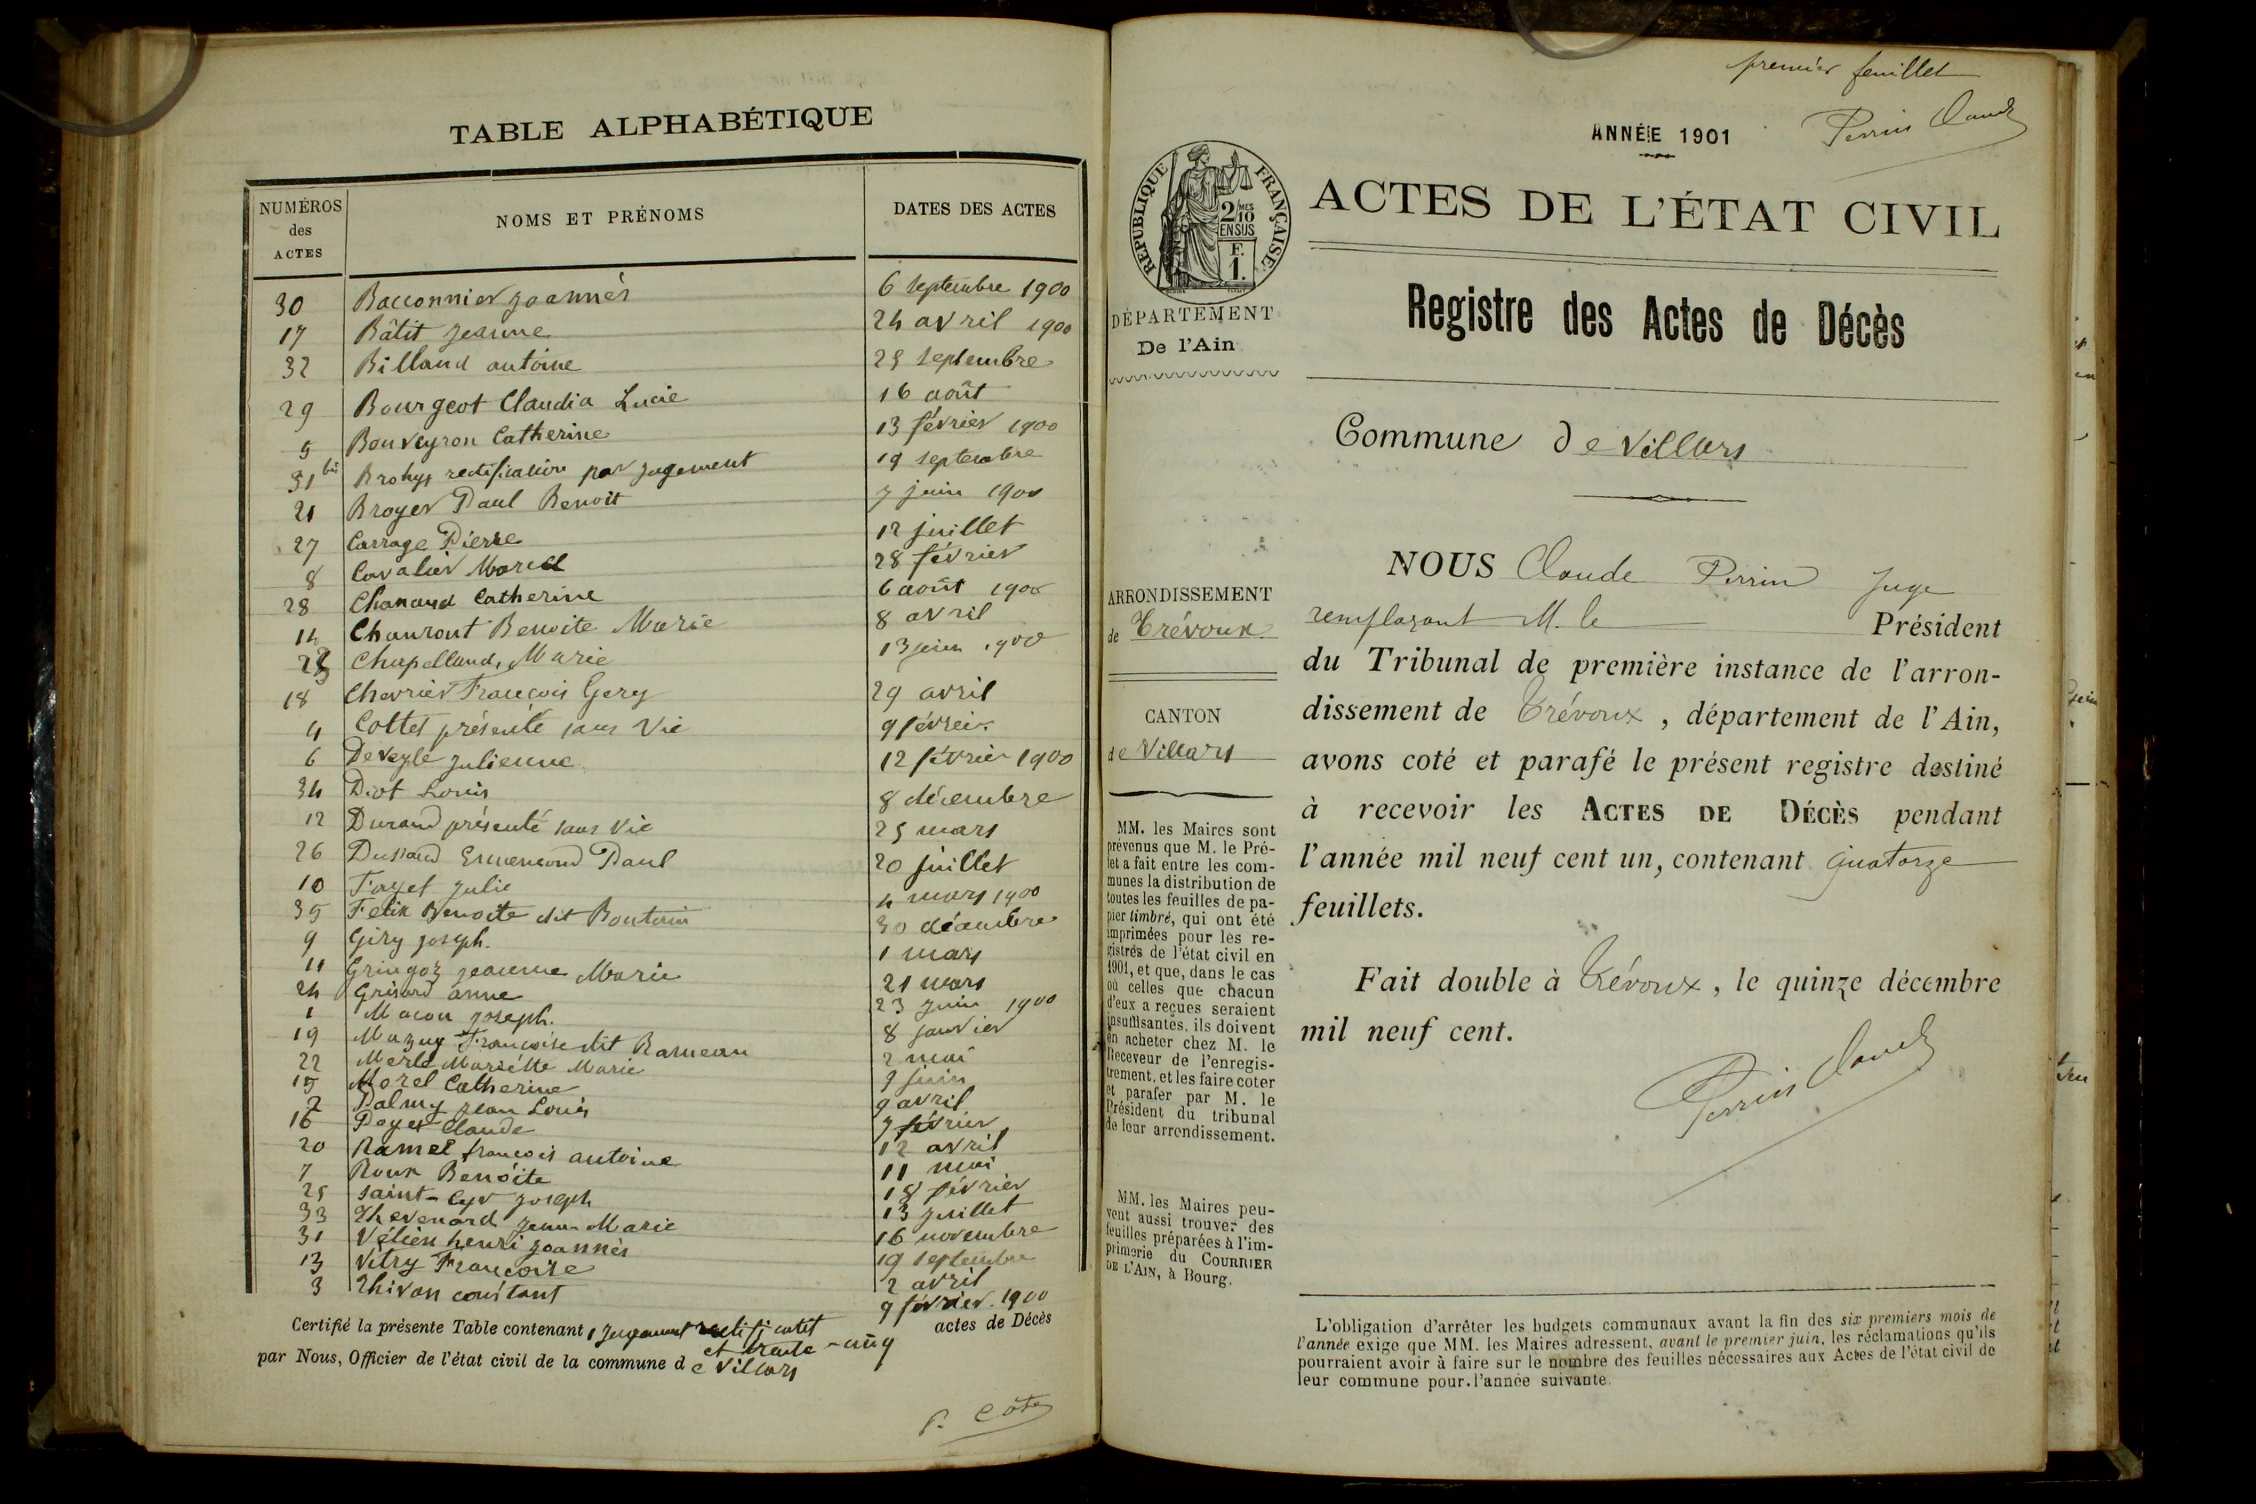 TABLE ALPHABÉTIQUE
NUMÉROS des ACTES | NOMS ET PRÉNOMS | DATES DES ACTES
30 Bacconnier joannès 6 septembre 1900
17 Bâtit jeanne 24 avril 1900
32 Billaud antoine 25 septembre
29 Bourgeot Claudia Lucie 16 août
5 Bouveyron Catherine 13 février 1900
31 bis Brohys rectification par jugement 19 septembre
21 Broyer Paul Benoit 7 juin 1900
27 Carrage Pierre 12 juillet
8 Cavalier Marcel 28 février
28 Chanaud Catherine 6 août 1900
14 Chauront Benoite Marie 8 avril
23 Chapelland, Marie 13 juin 1900
18 Chevrier François Gery 29 avril
4 Cottet présenté sans vie 9 février
6 Deveyle julienne 12 février 1900
34 Diot Louis 8 décembre
12 Durand présenté sans vie 25 mars
26 Dussaud Paul 20 juillet
10 Fayet julie 4 mars 1900
35 Felix Benoite dit Boutain 30 décembre
9 Giry joseph. 1 mars
11 Gringoz jeanne Marie 21 mars
24 Grisard anne 23 juin 1900
1 Macon joseph. 8 janvier
19 Mazuy Françoise dit Rameau 2 mai
22 Merle Mariette Marie 9 juin
15 Morel Catherine 9 avril
2 Palmy jean Louis 7 février
16 Payet Claude 12 avril
20 Ramel françois antoine 11 mai
7 Roux Benoite 18 février
25 saint-Cyr joseph 13 juillet
33 Thevenard jeanne Marie 16 novembre
31 Vélien henri joannès 19 septembre
13 Vitry Françoise 2 avril
3 Thivan constant 9 février 1900
Certifié la présente Table contenant 1 jugement rectificatif et trente-cinq actes de Décès
par Nous, Officier de l'état civil de la commune de Villars
P. Côte
premier feuillet
Perrin Claude
ANNÉE 1901
RÉPUBLIQUE FRANÇAISE
2/10 MES
EN SUS
F.
1.
ACTES DE L'ÉTAT CIVIL
DÉPARTEMENT
De l'Ain
Registre des Actes de Décès
Commune de Villars
ARRONDISSEMENT
de Trévoux
CANTON
de Villars
MM. les Maires sont
prévenus que M. le Pré-
fet a fait entre les com-
munes la distribution de
toutes les feuilles de pa-
pier timbré, qui ont été
imprimées pour les re-
gistres de l'état civil en
1901, et que, dans le cas
où celles que chacun
d'eux a reçues seraient
insuffisantes, ils doivent
en acheter chez M. le
Receveur de l'enregis-
trement, et les faire coter
et parafer par M. le
Président du tribunal
de leur arrondissement.
MM. les Maires peu-
vent aussi trouver des
feuilles préparées à l'im-
primerie du COURRIER
DE L'AIN, à Bourg.
NOUS Claude Perrin Juge
remplaçant M. le Président
du Tribunal de première instance de l'arron-
dissement de Trévoux, département de l'Ain,
avons coté et parafé le présent registre destiné
à recevoir les ACTES DE DÉCÈS pendant
l'année mil neuf cent un, contenant quatorze
feuillets.
Fait double à Trévoux, le quinze décembre
mil neuf cent.
Perrin Claude
L'obligation d'arrêter les budgets communaux avant la fin des six premiers mois de
l'année exige que MM. les Maires adressent, avant le premier juin, les réclamations qu'ils
pourraient avoir à faire sur le nombre des feuilles nécessaires aux Actes de l'état civil de
leur commune pour l'année suivante.